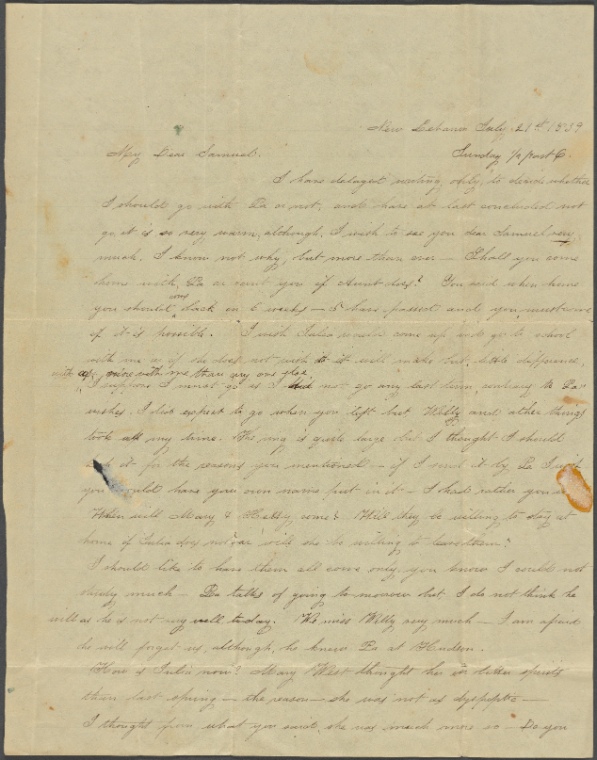 New Lebanon July 21st 1839
My Dear Samuel. Sunday 1/2 past 6.
I have delayed writing only, to decide whether
I should go with Pa or not, and have at last concluded not
go, it is so very warm, although, I wish to see you dear Samuel very
much. I know not why, but more than ever — Shall you come
home with Pa or wait you if Aunt does? You said when home
you should come back in 6 weeks — 5 have passed and you must come
if it is possible. I wish Julia would come up and go to school
with me as if she does not wish it it will make but little difference,
with me than any one else.
I suppose I must go as I did not go any last term, contrary to Pa's
wishes. I did expect to go when you left but Willy and other things
took all my time. The ring is quite large but I thought I should
it for the reasons you mentioned — if I send it by Pa I wish
you would have your own name put in it — I had rather you
When will Mary & Hetty come? Will they be willing to stay at
home if Julia does not or will she be willing to leave them?
I should like to have them all come only you know I could not
study much — Pa talks of going to-morrow but I do not think he
will as he is not very well to day. We miss Willy very much — I am afraid
he will forget us, although, he knew Pa at Hudson.
How is Julia now? Mary West thought her in better spirits
than last spring — the reason — she was not as dyspeptic —
I thought from what you said, she was much more so — Do you